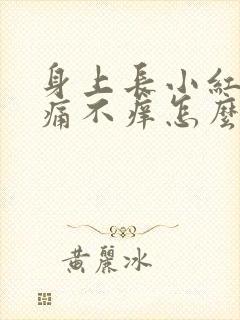 身上長小紅
痛不癢怎麼
黃麗冰